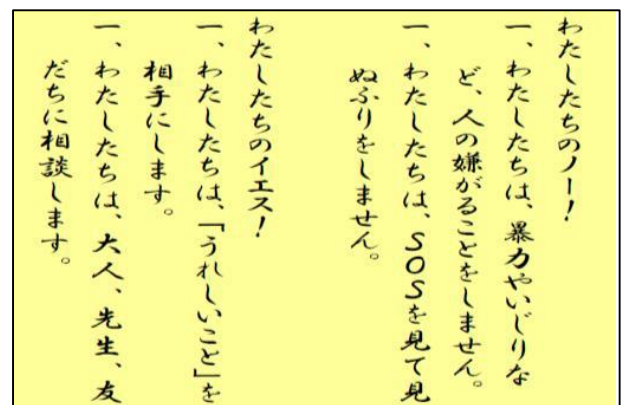 わたしたちのノー！
一、わたしたちは、暴力やいじりな
ど、人の嫌がることをしません。
一、わたしたちは、ＳＯＳを見て見
ぬふりをしません。
わたしたちのイエス！
一、わたしたちは、「うれしいこと」を
相手にします。
一、わたしたちは、大人、先生、友
だちに相談します。